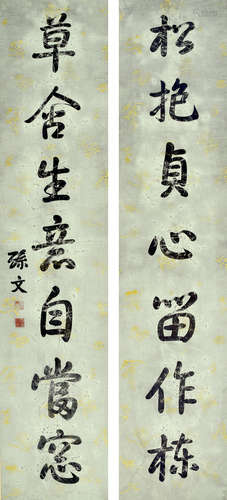 松抱貞心留作栋
草含生意自當窓
孫文